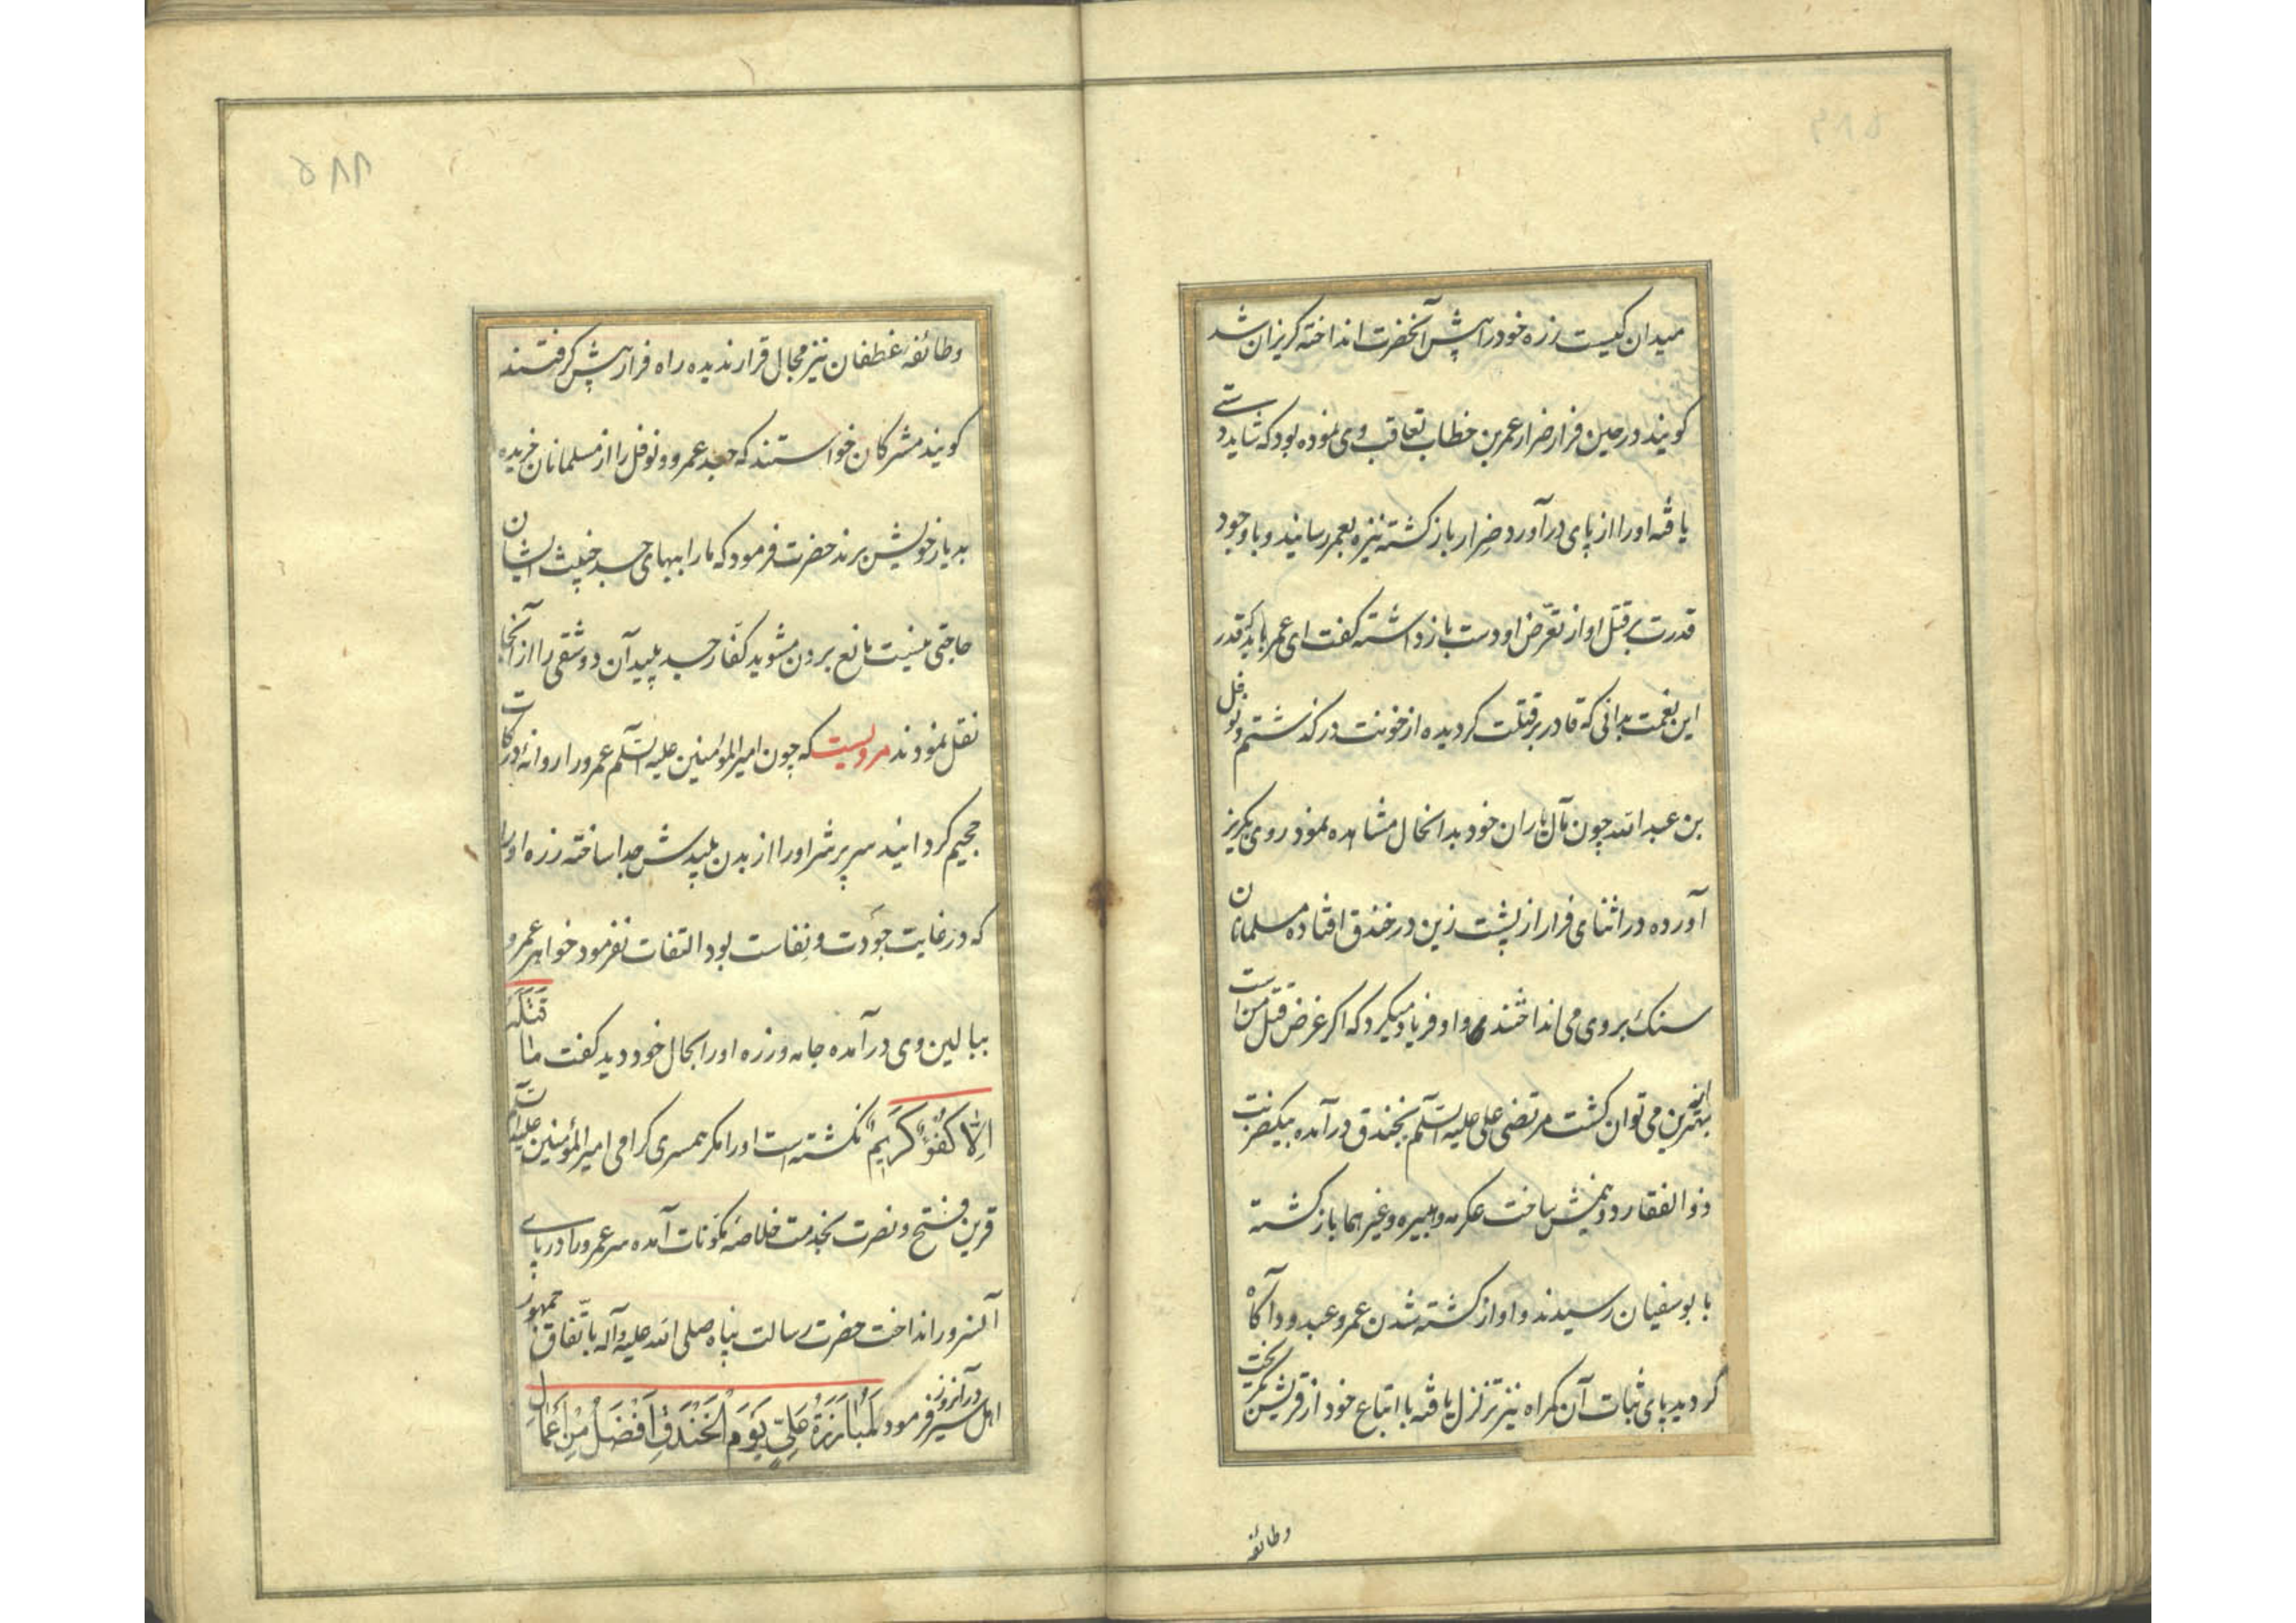 میدان کیست زره خود را پیش آنحضرت انداخته کریزان شد
کویند در حین فرار ضرار عمر بن خطاب تعاقب وی نموده بود که شاید دستی
یافته او را از پای درآورد ضرار باز کشته نیزه بعمر رسانید و با وجود
قدرت بر قتل او از تعرّض او دست باز داشته کفت ای عمر باید که قدر
این نعمت بدانی که قادر بر قتلت کردیده از خونت درکذشتم و نوفل
بن عبد الله چون مآل یاران خود بدانحال مشاهده نمود روی بکریز
آورده در اثنای فرار از پشت زین در خندق افتاده مسلمانان
سنک بر وی می انداختند و او فریاد میکرد که اکر غرض قتل من است
بهتر ازین می توان کشت مرتضی علی علیه السّلم بخندق درآمده بیکضربت
ذو الفقار دو نیمش ساخت عکرمه و هبیره و غیرهما باز کشته
با بوسفیان رسیدند و او از کشته شدن عمرو عبدود آکاه
کردید پای ثبات آن کمراه نیز تزلزل یافته با اتباع خود از قریش بکریخت
وطائفه
۵۸۸
وطائفه غطفان نیز مجال قرار ندیده راه فرار پیش کرفتند
کویند مشرکان خواستند که جسد عمرو و نوفل را از مسلمانان خریده
بدیار خویش برند حضرت فرمود که ما را ببهای جسد خبیث ایشان
حاجتی نیست مانع بردن مشوید کفّار جسد پلید آن دو شقی را از آنجا
نقل نمودند مرویست که چون امیر المؤمنین علیه السّلم عمرو را روانه درکات
جحیم کردانید سر پر شر او را از بدن پلیدش جدا ساخته زره او را
که در غایت جودت و نفاست بود التفات نفرمود خواهر عمرو
ببالین وی درآمده جامه و زره او را بحال خود دید کفت مَا قَتَلَهُ
اِلّا کُفْوٌ کَرِیمٌ نکشته است او را مکر همسری کرامی امیر المؤمنین علیه السّلم
قرین فتح و نصرت بخدمت خلاصه مکونات آمده سر عمرو را در پای
آنسرور انداخت حضرت رسالت پناه صلی الله علیه و آله باتّفاق جمهور
اهل سیر در آنروز فرمود لَمُبارَزَةُ عَلِیٍّ یَوْمَ الْخَنْدَقِ اَفْضَلُ مِنْ اَعْمَالِ